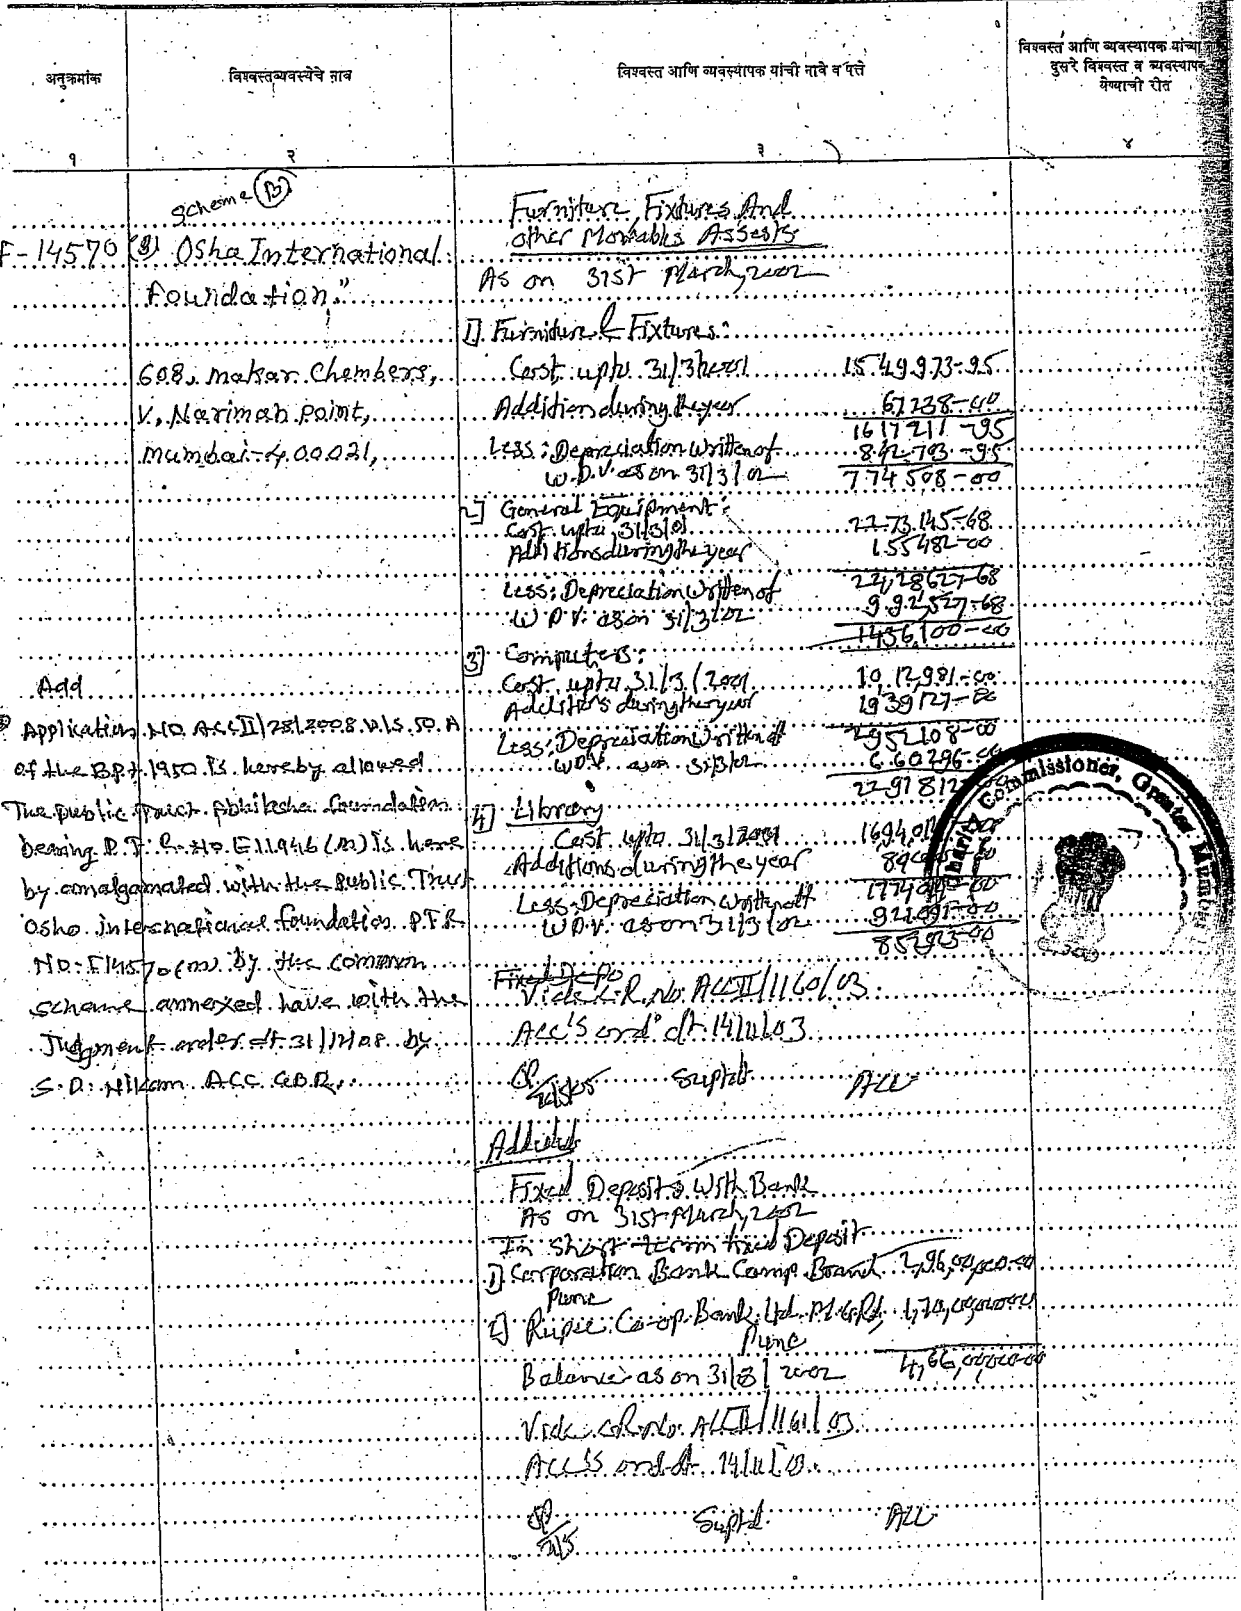 अनुक्रमांक
विश्वस्तव्यवस्थेचे नाव
विश्वस्त आणि व्यवस्थापक यांची नावे व पत्ते
विश्वस्त आणि व्यवस्थापक यांच्या
दुसरे विश्वस्त व व्यवस्थापक
येण्याची रीत
१
२
३
४
Scheme (B)
F-14570 (B) Osho International
Foundation."
608, Makar Chembers,
V, Nariman Point,
Mumbai-400021,
Add
Application NO. ACC II/28/2008 U/S. 50.A
of the B.P.t. 1950 is hereby allowed
The public Trust Abhiksha foundation
bearing P.T.R. No. E 11946 (M) is here
by amalgamated with the Public Trust
Osho international foundation P.T.R
NO: F14570 (M) by the common
scheme annexed have with the
Judgment order dt 31/12/08 by
S.D. Nikam ACC G.B.R.
Furniture, Fixtures And
other Moveables Assests
As on 31st March, 2002
1] Furniture & Fixtures:
Cost upto 31/3/2001 15 49 973-95
Addition during the year 67238-00
1617211-95
Less: Depreciation Written of 842703-95
W.D.V. as on 31/3/02 774508-00
2] General Equipment:
Cost upto 31/3/01 22 73 145-68
Additions during the year 155482-00
24,28627-68
Less: Depreciation Written of 992,527-68
W D V. as on 31/3/02 1436,100-00
3] Computers:
Cost upto 31/3/2001 10,12,981-00
Additions during the year 1939127-00
2952108-00
Less: Depreciation Written off 660296-00
W.D.V. as on 31/3/02 2291812-00
4] Library
Cost upto 31/3/2001
Additions during the year
Less Depreciation Written off
W.D.V. as on 31/3/02
Charity Commissioner, Greater Mumbai
Fixed Depo
Vide C.R. No. ACC II/1160/03
ACC's ord. dt. 14/11/03
Suptd. ACC
Fixed Deposits With Bank
As on 31st March, 2002
In Short term fixed Deposit
1] Corporation Bank Camp Branch 2,96,00,000-00
Pune
2] Rupee Co-op. Bank Ltd. M.G. Rd, 1,70,00,000-00
Pune
Balance as on 31/3/2002 4,66,00,000-00
Vide C.R. No. ACC II/1161/03
ACC's ord. dt 14/11/03.
Suptd. ACC